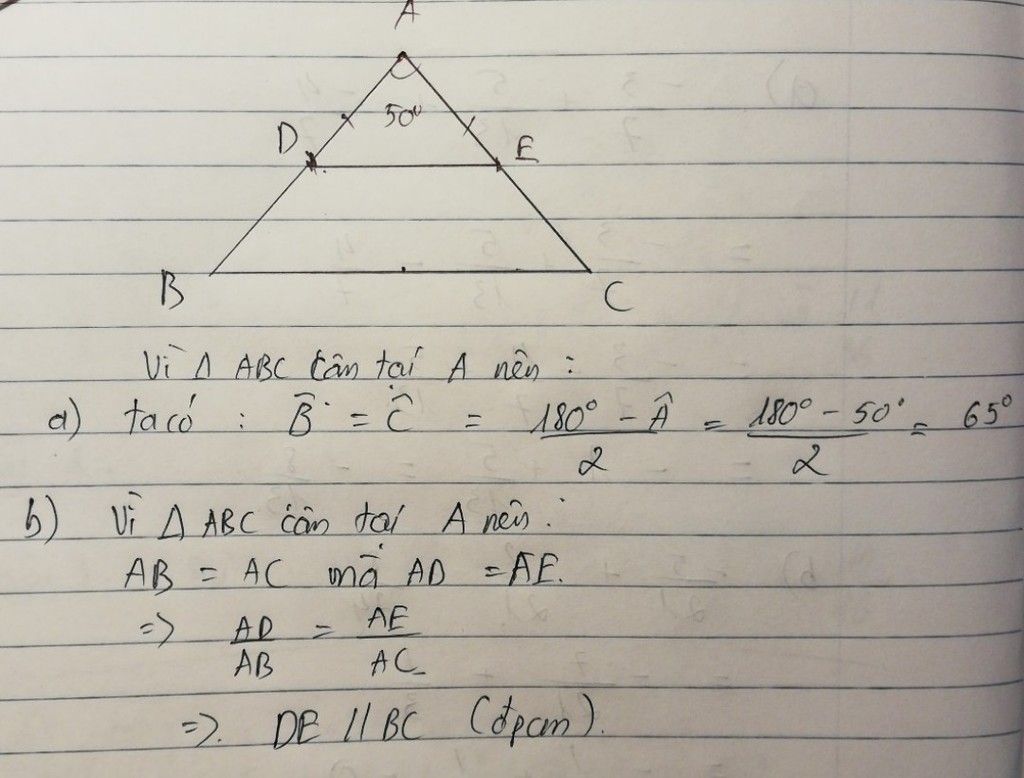 A
50°
D E
B C
Vì Δ ABC cân tại A nên :
a) ta có : B̂ = Ĉ = (180° - Â)/2 = (180° - 50°)/2 = 65°
b) Vì Δ ABC cân tại A nên :
AB = AC mà AD = AE.
=> AD/AB = AE/AC
=> DE // BC (đpcm).